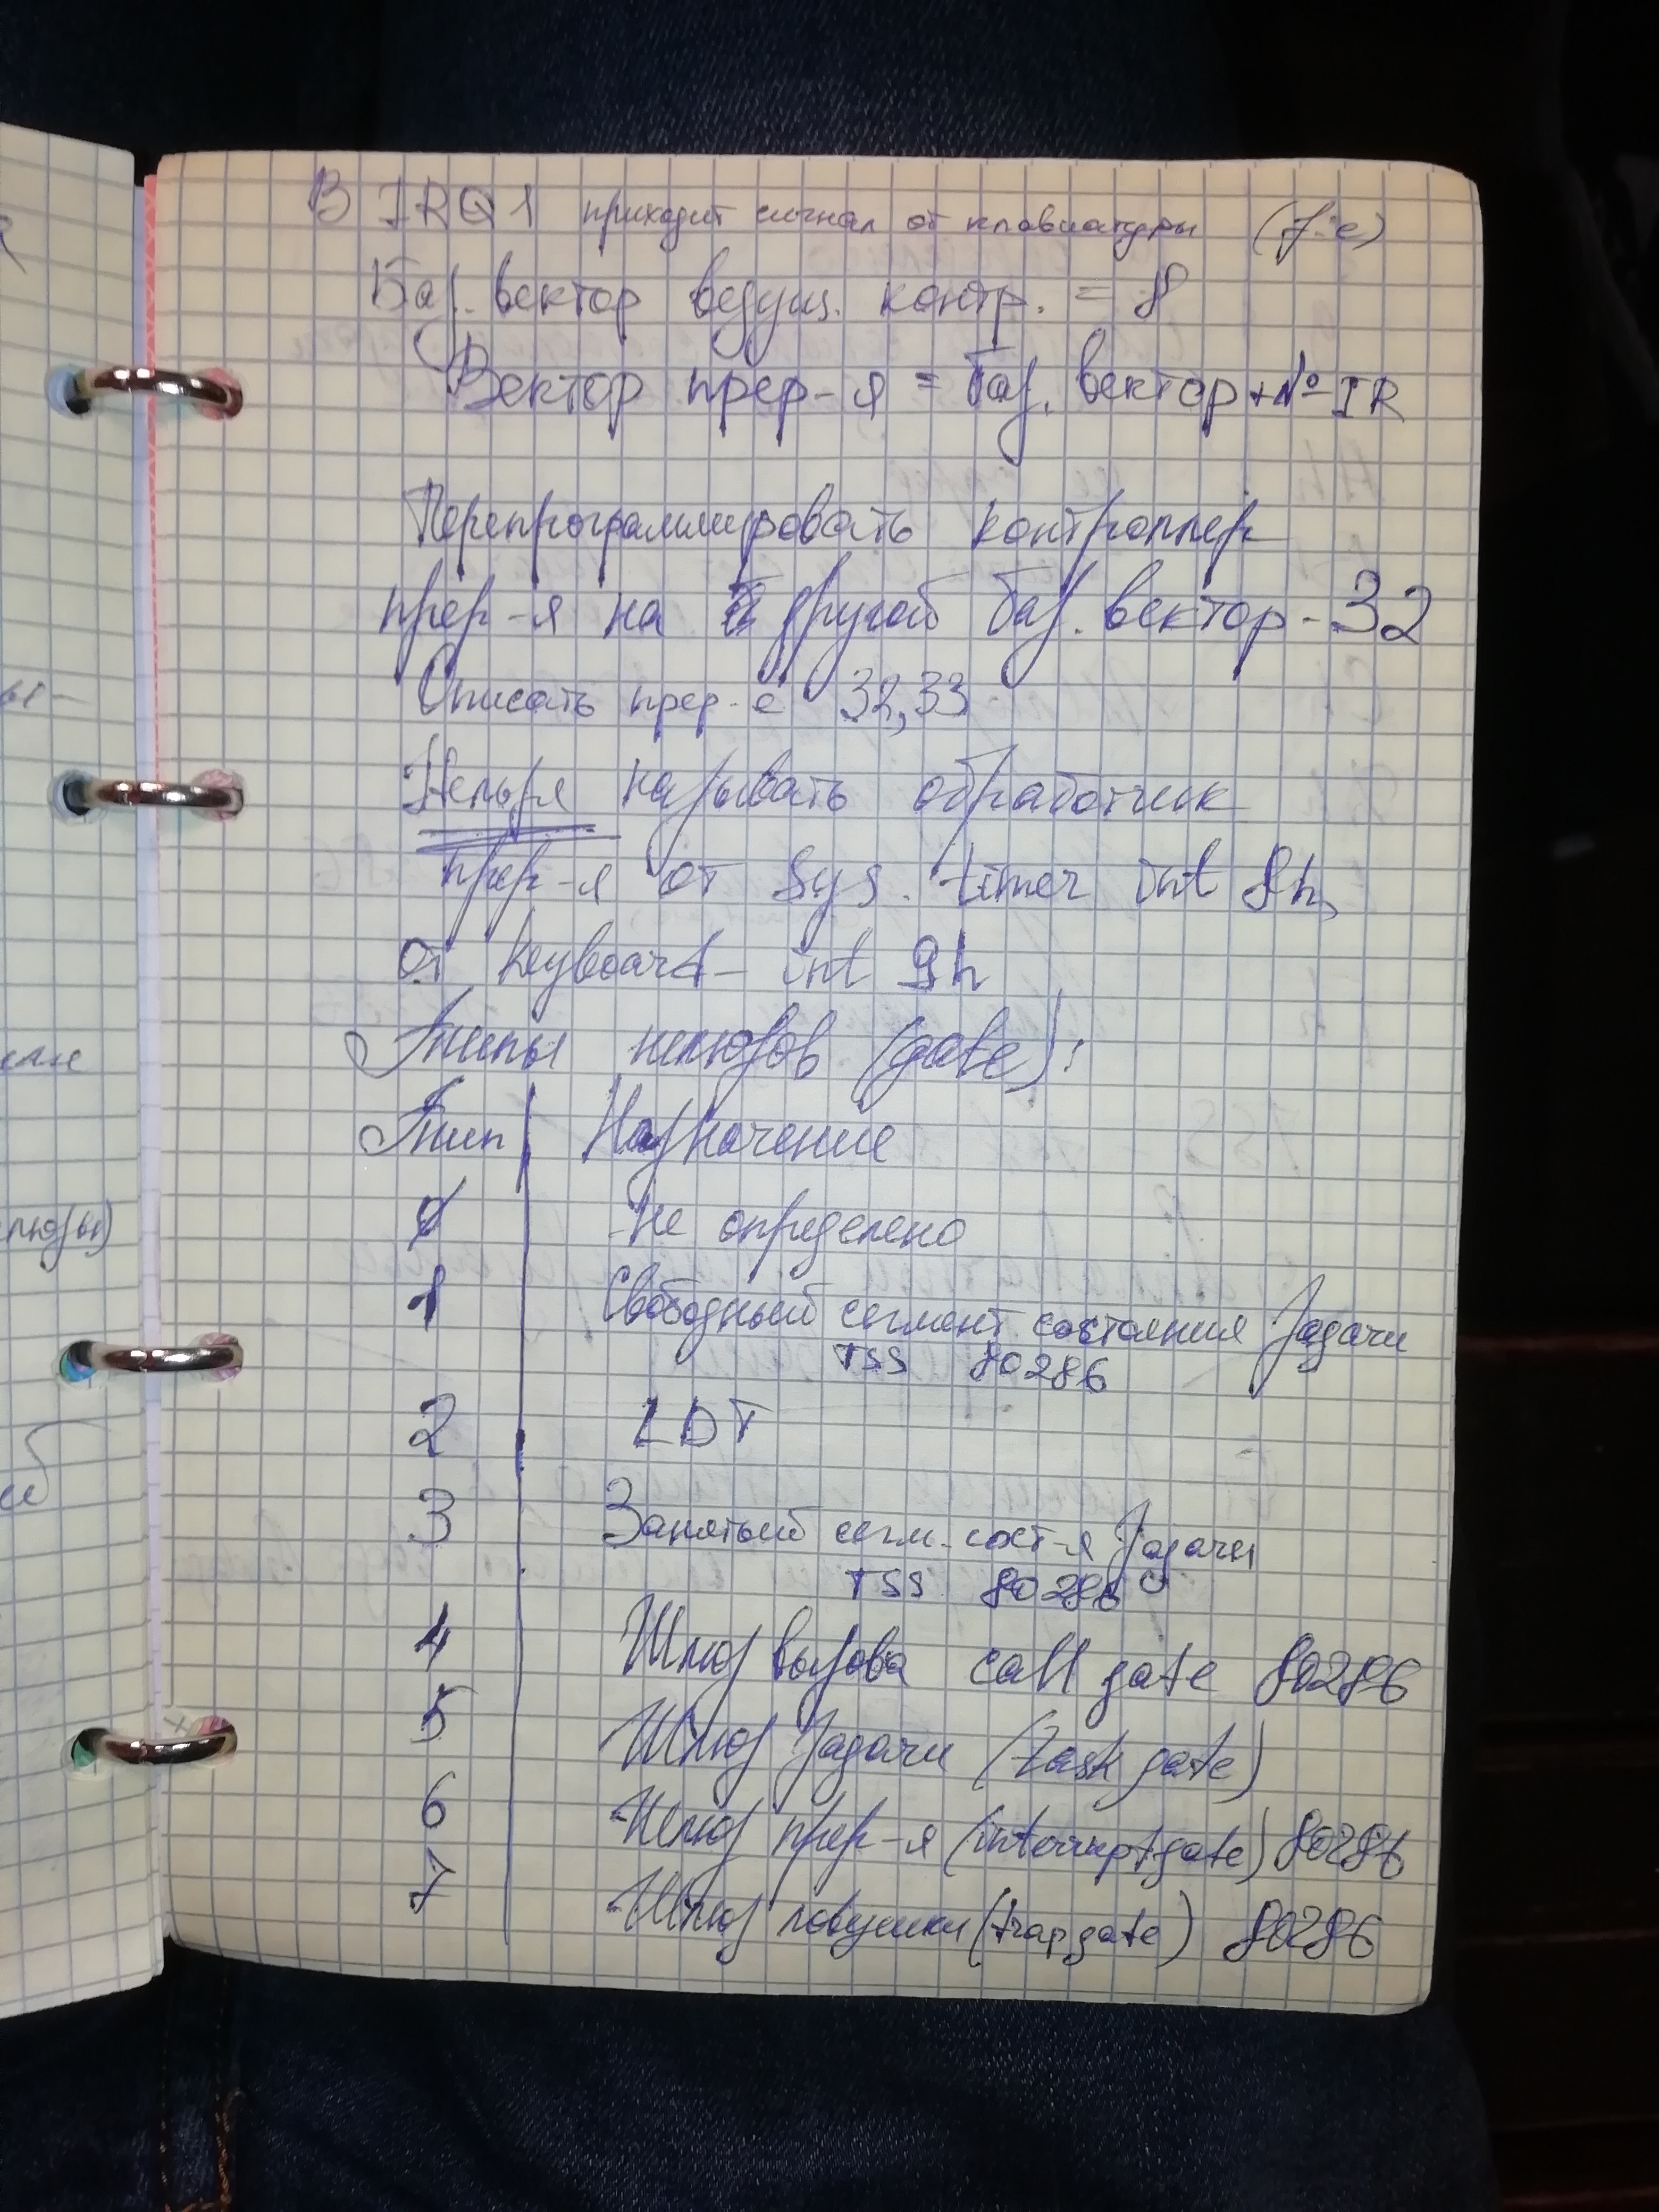 В IRQ1 приходит сигнал от клавиатуры
Баз. вектор ведущ. контр. = 8
Вектор прер-я = баз. вектор + № IR
Перепрограммировать контроллер
прер-я на другой баз. вектор - 32
Описать прер-е 32, 33
Нельзя называть обработчик
прер-я от sys. timer int 8h,
от keyboard - int 9h
Типы шлюзов (gate):
Тип | Назначение
0 Не определено
1 Свободный сегмент состояния задачи
TSS 80286
2 LDT
3 Занятый сегм. сост-я задачи
TSS 80286
4 Шлюз вызова call gate 80286
5 Шлюз задачи (task gate)
6 Шлюз прер-я (interrupt gate) 80286
7 Шлюз ловушки (trap gate) 80286